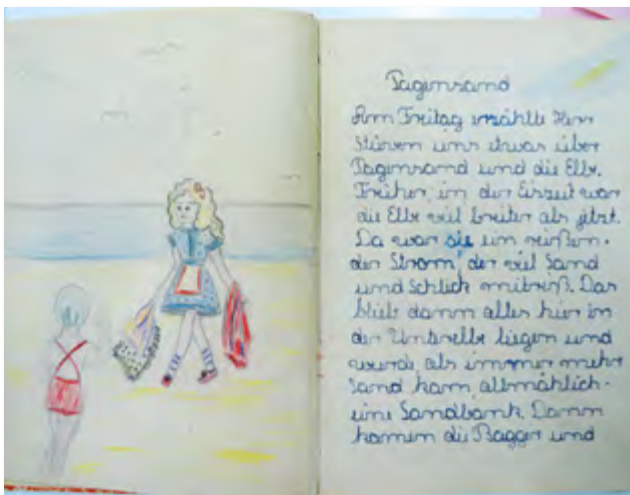 Pagensand
Am Freitag erzählte Herr
Stüven uns etwas über
Pagensand und die Elbe.
Früher, in der Eiszeit war
die Elbe viel breiter als jetzt.
Da war sie ein reißen-
der Strom, der viel Sand
und Schlick mitriß. Das
blieb dann alles hier in
der Unterelbe liegen und
wurde, als immer mehr
Sand kam, allmählich
eine Sandbank. Dann
kamen die Bagger und